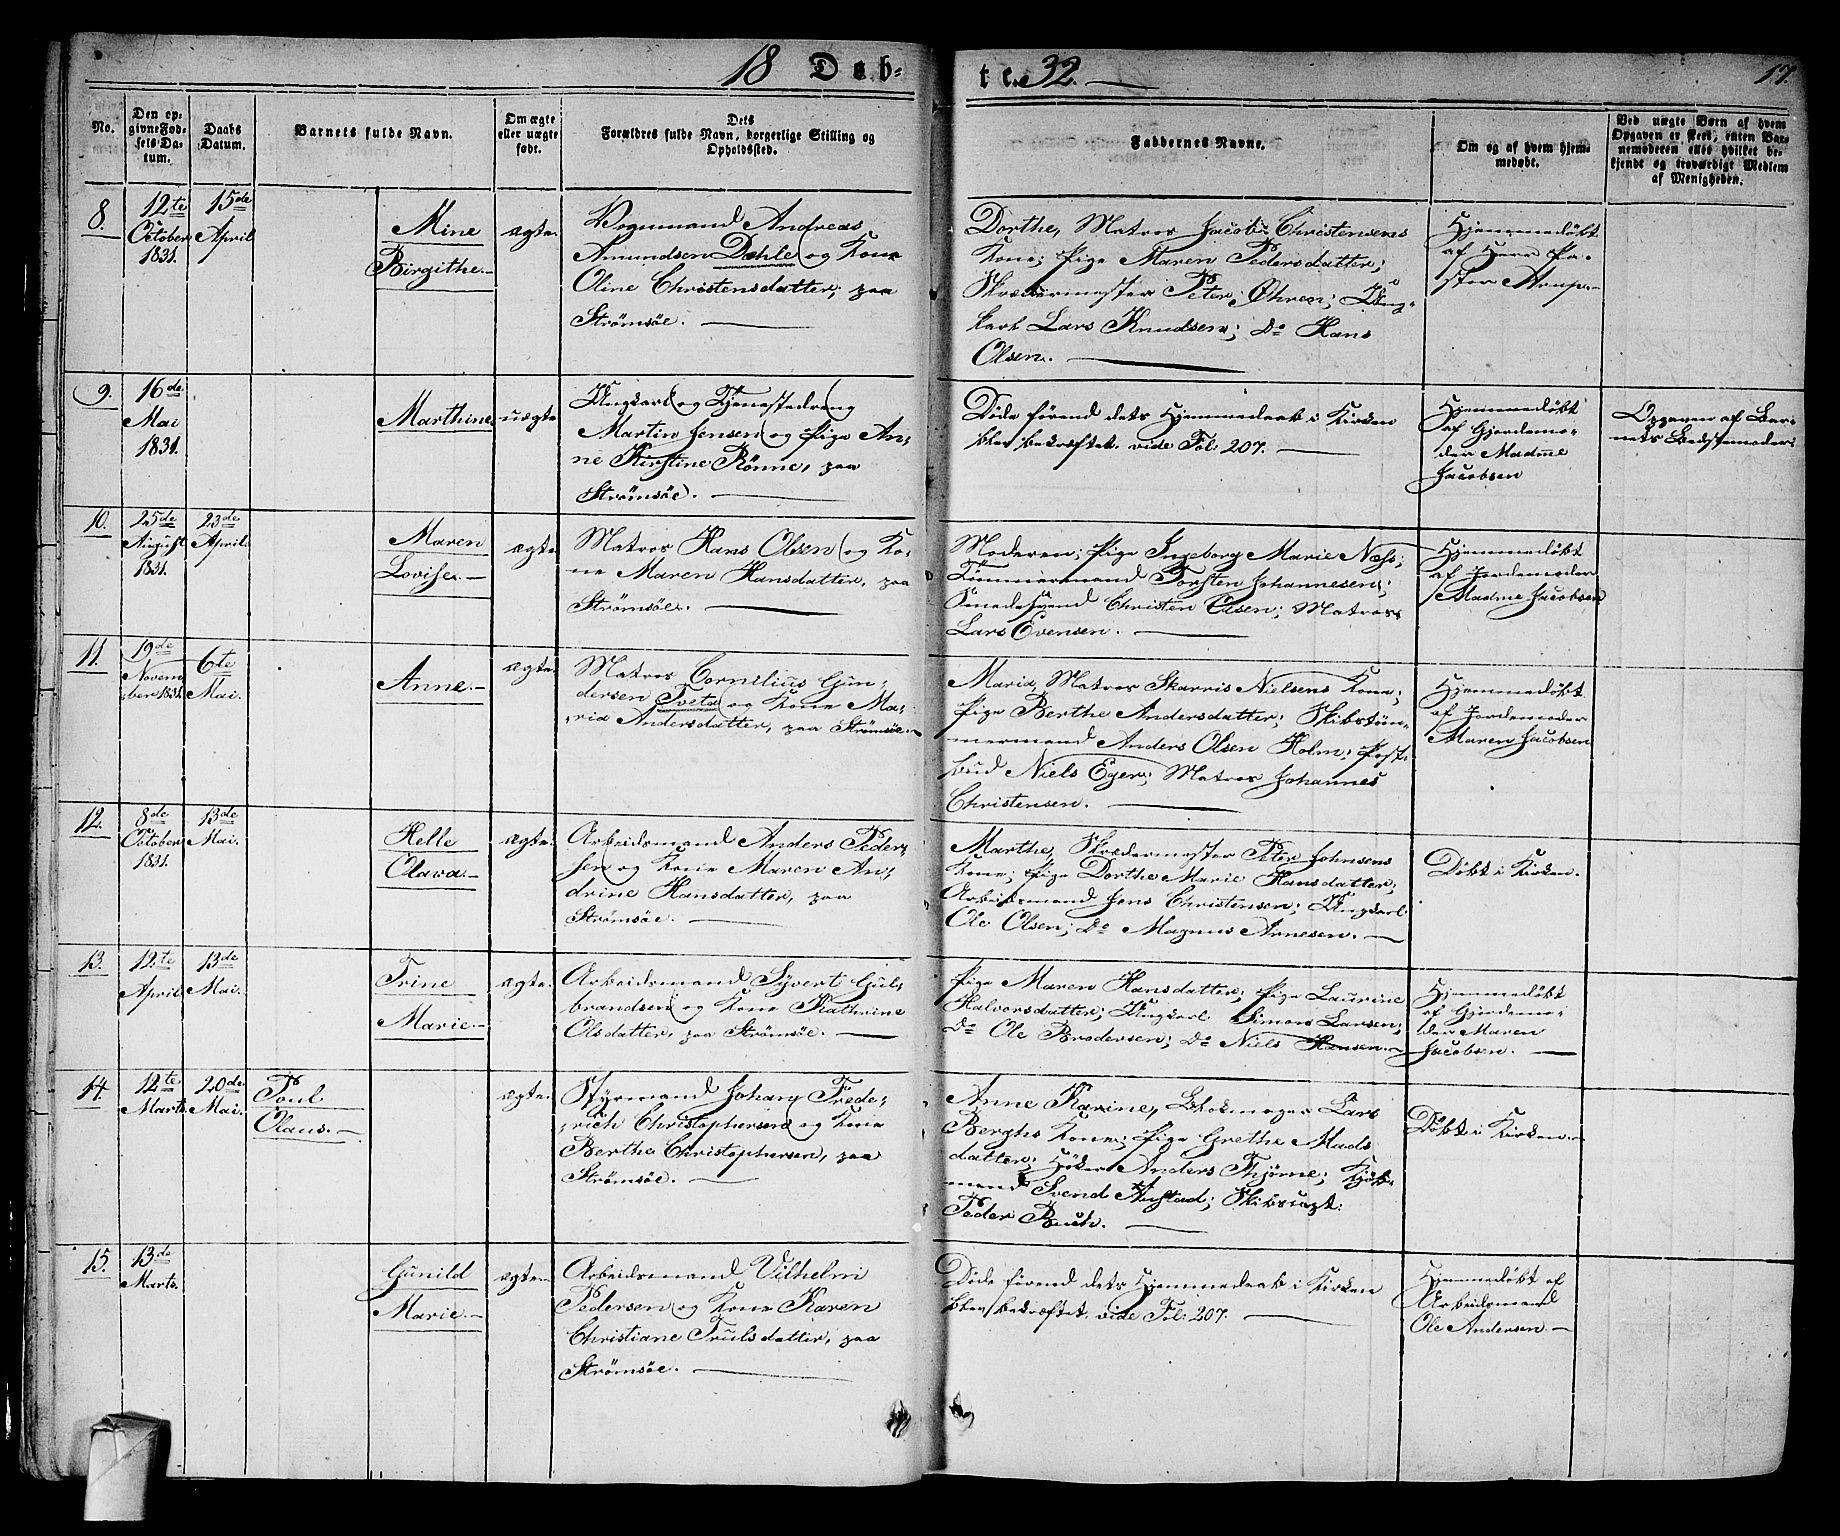 18 Døb-
te. 32.
17.
No.
Den opgivne Fødselsdatum.
Daabs Datum.
Barnets fulde Navn.
Om ægte eller uægte født.
Dets Forældres fulde Navn, borgerlige Stilling og Opholdssted.
Faddernes Navne.
Om og af hvem hjemmedøbt.
Ved uægte Børn af hvem Opgaven er skeet, enten Barnemoderen eller hvilket bekjendt og troværdigt Medlem af Menigheden.
8.
12te October 1831.
15de April
Mine
Birgithe.-
ægte.
Vognmand Andreas
Amundsen Dahle og Kone
Oline Christensdatter, paa
Strømsøe.
Dorthe, Matros Jacob Christensens
Kone; Pige Maren Pedersdatter;
Skrædermester Peter Øhren; Ung-
karl Lars Knudsen; Do Hans
Olsen.
Hjemmedøbt
af Herr Pa-
stor Arup.-
9.
16de Mai 1831.
Marthine
uægte
Ungkarl og Tjenestedreng
Martin Jensen og Pige An-
ne Kirstine Rønne, paa
Strømsøe.
Døde førend dets Hjemmedaab i Kirken
blev bekræftet. vide Fol: 207.
Hjemmedøbt
af Gjordemo-
der Madme
Jacobsen
Opgaven af Bar-
nets Bedstemoder.
10.
25de August 1831.
23de April.
Maren
Lovise.-
ægte.
Matros Hans Olsen og Ko-
ne Maren Hansdatter, paa
Strømsøe.
Moderen; Pige Ingeborg Marie Næss;
Tømmermand Torsten Johannesen;
Smedesvend Christen Olsen; Matros
Lars Evensen.
Hjemmedøbt
af Jordemoder
Madme Jacobsen
11.
19de November 1831.
6te Mai.
Anne.-
ægte.
Matros Cornilius Gun-
dersen Tveta og Kone Ma-
ria Andersdatter, paa Strømsøe.
Maria, Matros Skarris Nielsens Kone;
Pige Berthe Andersdatter; Skibstøm-
mermand Anders Olsen Holm; Post-
bud Niels Eger; Matros Johannes
Christensen.
Hjemmedøbt
af Jordemoder
Maren Jacobsen
12.
8de October 1831.
13de Mai.
Helle
Olava.-
ægte.
Arbeidsmand Anders Peder-
sen og Kone Maren An-
drine Hansdatter, paa
Strømsøe.
Marthe, Skrædermester Peter Johnsens
Kone; Pige Dorthe Marie Hansdatter;
Arbeidsmand Jens Christensen; Ungkarl
Ole Olsen; Do Magnus Arnesen.
Døbt i Kirken.
13.
12te April
13de Mai.
Trine
Marie.-
ægte.
Arbeidsmand Syvert Gul-
brandsen og Kone Kathrine
Olsdatter, paa Strømsøe.
Pige Maren Hansdatter; Pige Laurine
Halvorsdatter; Ungkarl Simon Larsen;
Do Ole Brodersen; Do Niels Hansen.
Hjemmedøbt
af Gjordemo-
der Maren
Jacobsen.
14.
12te Marts
20de Mai.
Poul
Olaus.-
ægte.
Styrmand Johan Frede-
rich Christophersen og Kone
Berthe Christophersen, paa
Strømsøe.
Anne Karine, Blokmager Lars
Berghs Kone; Pige Grethe Mads
datter; Høker Anders Thjørne; Kjøb-
mand Svend Austad; Skibsvagt:
Peder Buch.
Døbt i Kirken.
15.
13de Marts.
Gunild
Marie.-
ægte.
Arbeidsmand Vilhelm
Pedersen og Kone Karen
Christiane Trulsdatter, paa
Strømsøe.
Døde førend dets Hjemmedaab i Kirken
blev bekræftet. vide Fol: 207.
Hjemmedøbt af
Arbeidsmand
Ole Andersen